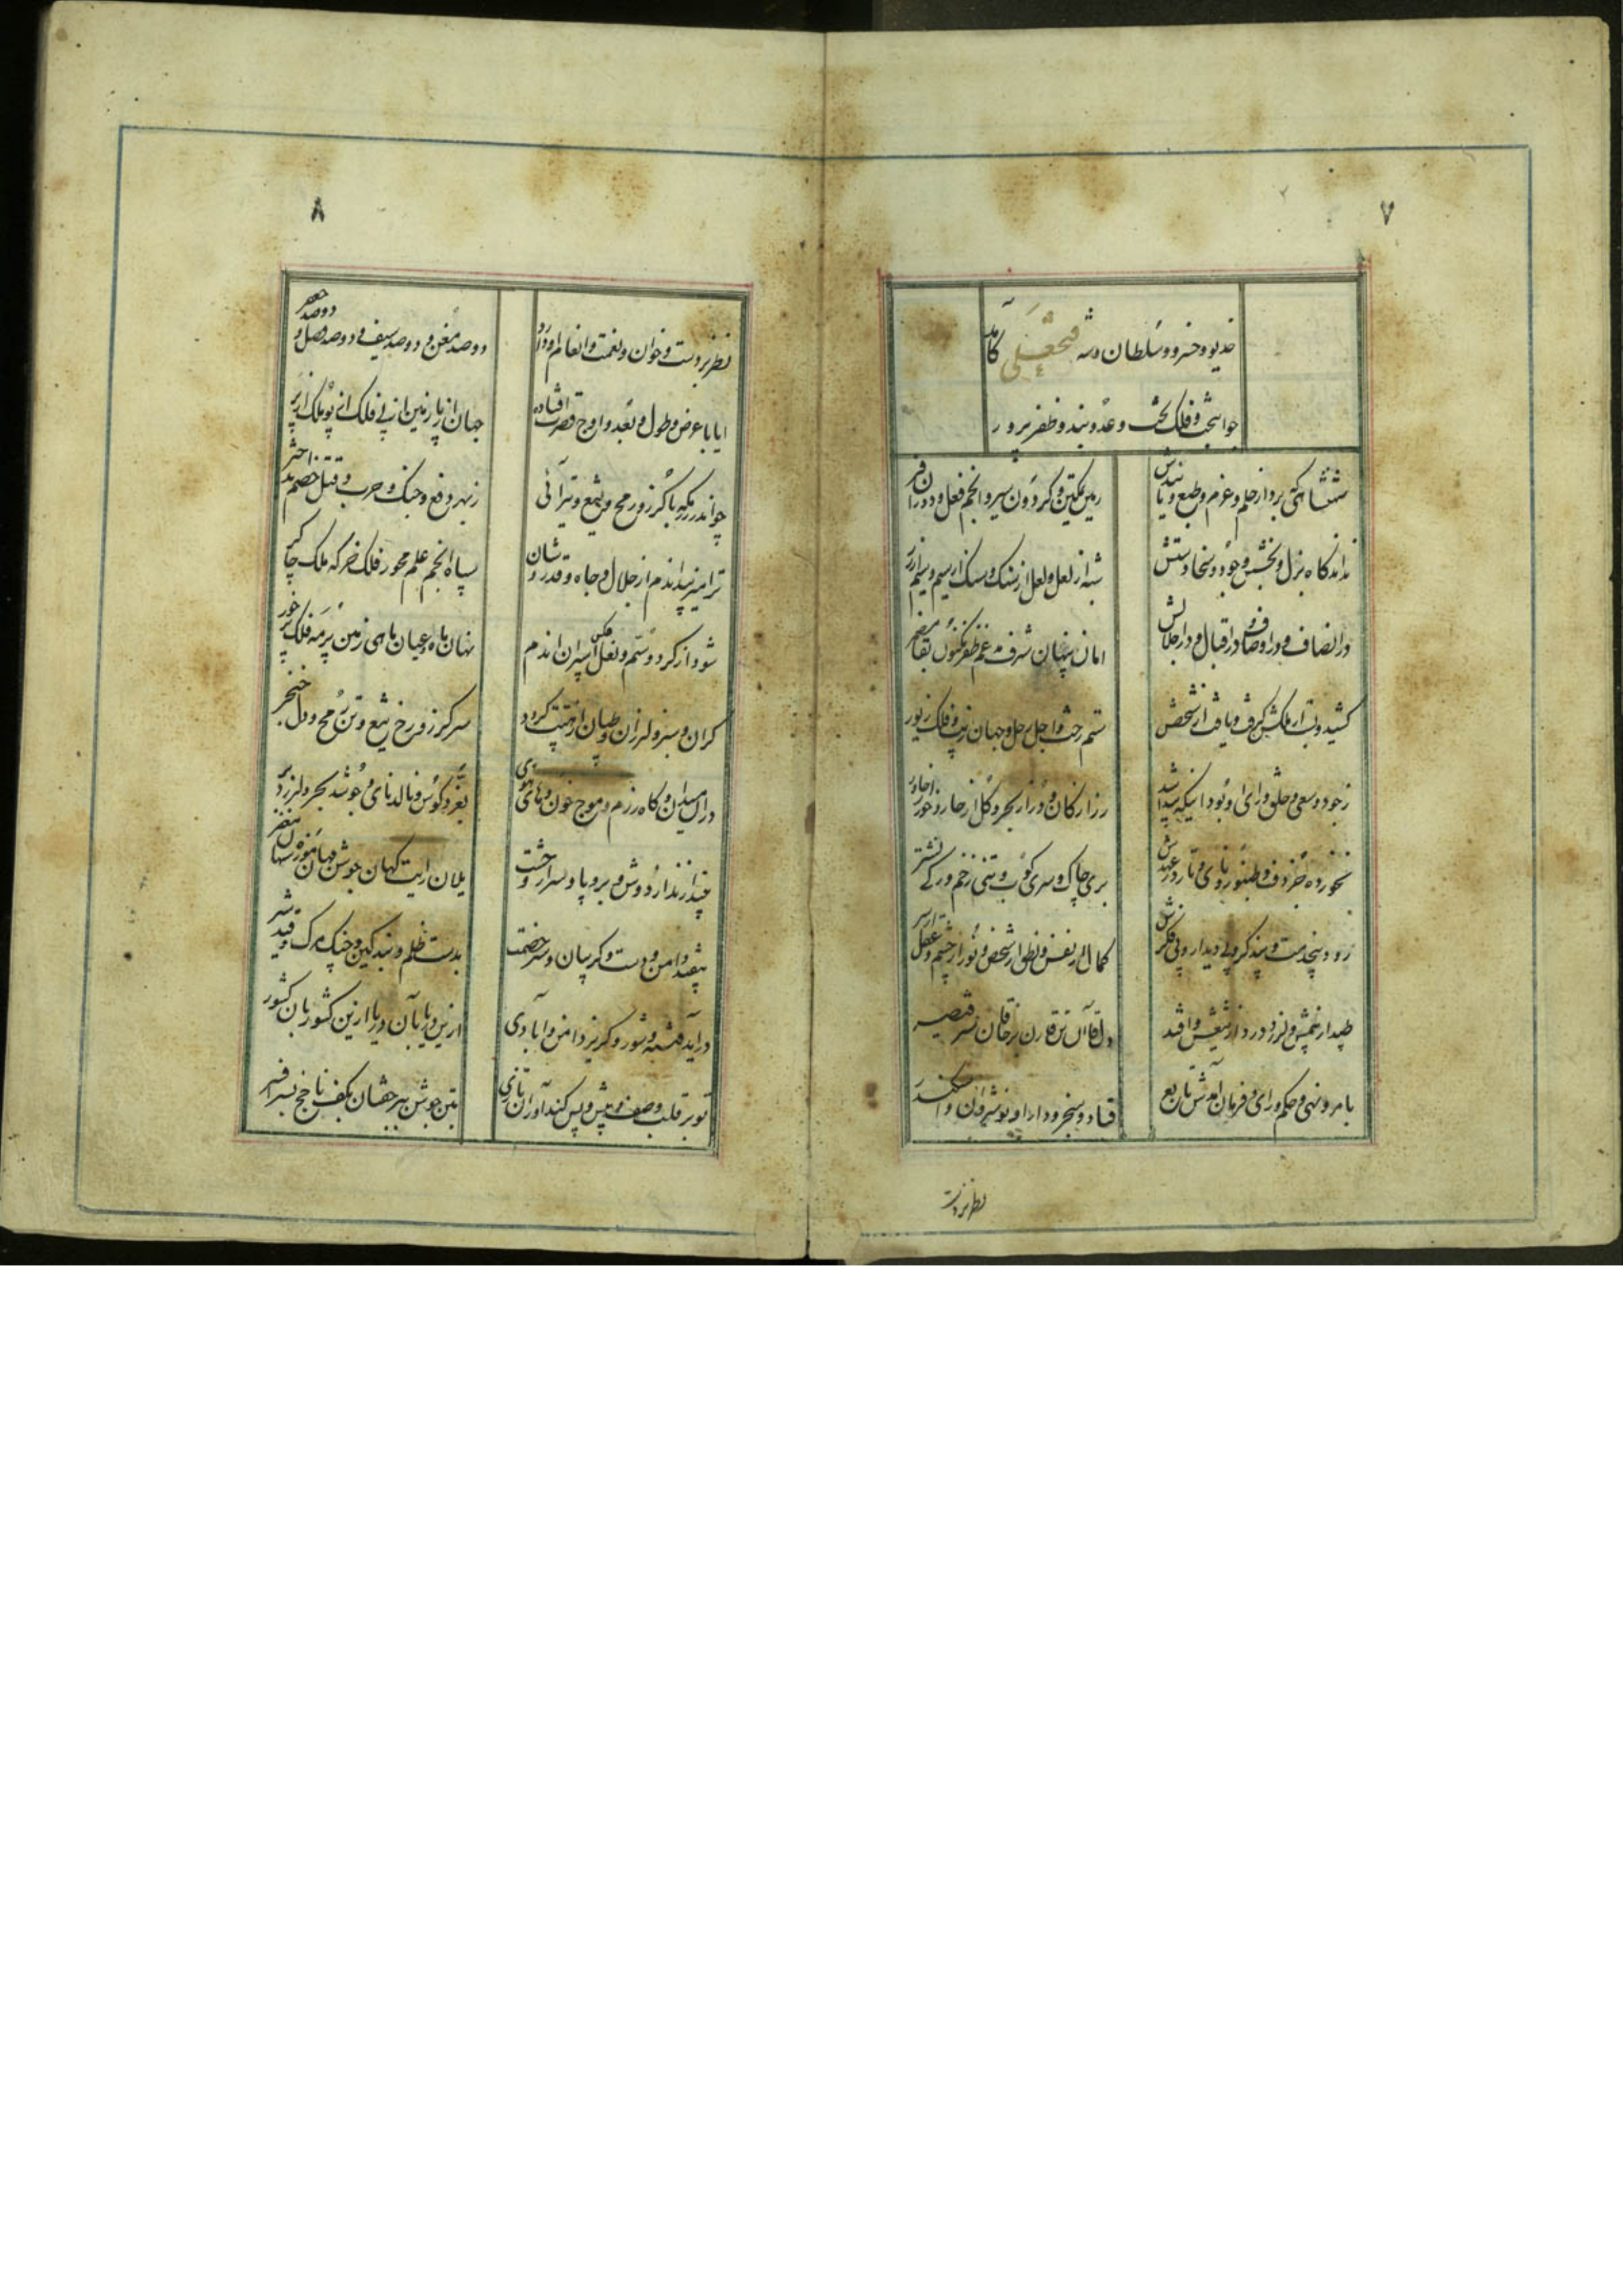 ۷
خدیو و خسرو و سلطان و شه فتحعلی کامد
جوانبخت و فلک تخت و عدوبند و ظفرپرور
شهنشاهی که بردار حلم و عزم و طبع و
زمین تمکین و گردون سیر و انجم فعل و دوران فر
نداند گاه بزل و بخشش و جود و سخا دستش
شبه از لعل و لعل از سنک و سنک از سیم و سیم از زر
در انصاف و در اوصاف و در اقبال و در اجلالش
امان پنهان شرف مدغم ظفر مکنون بقا مضمر
کشید و بست از ملکش گرفت و یافت از شخصش
ستم رخت و اجل رحل و جهان زیب و فلک زیور
ز جود و سعی و خلق و رای او بود اینکه پیدا شد
زر از کان و در از بحر و گل از خار و خور از خاور
نخورده جز دف و طنبور و نای و تار در عهدش
بری چاک و سری کوب و تنی زخم و رگی نشتر
کمال از نفس و نطق از شخص و نور از چشم و عقل از سر
طپد از خمش و لرزد درد از تیغش وافتد
دل قاآن تن قارن بر خاقان سر قیصر
بامر و نهی و حکم و رای و فرمان آمدش تابع
قباد و سنجر و دارا و نوشیروان و اسکندر
نظر بر دست
۸
نظر بر دست و خوان و نعمت و انعام او دارد
دو صد معن و دو صد سیف و دو صد فضل و دو صد جعفر
ایا با عرض و طول و بعد و اوج قصرت افتاده
جهان از پا زمین از پی فلک از پو ملک از پر
چو اندر رزمگه با گرز و رمح و تیغ و تیر آئی
ز بهر دفع و جنک و حرب و قتل خصم بد اختر
ترا میزیبد اندم از جلال و جاه و قدر و شان
سپاه انجم علم محور فلک خرگه ملک چاکر
شود از گرد و ستم و نعل و عکس اسپران اندم
نهان ماه و عیان ماهی زمین پر مه فلک پر خور
گران و سبز و لرزان و طپان از هیبتت گردد
سر گرز و رخ تیغ و تن رمح و دل خنجر
در آن میدان و گاه رزم و موج خون و های و هوی
بغرد کوس و نالد نای و جوشد بحر و لرزد بر
بیندازند از دوش و بر و پا و سر از وحشت
یلان رایت کهان جوشن مهان موزه شهان مغفر
بیفتد دامن و دست و گریبان و سر خصمت
بدست ظلم و بند کین و چنک مرک و قید شر
درآید فتنه و شور و گریزد امن و آبادی
ازین دریا بآن دریا ازین کشور بآن کشور
تو بر قلب و صف و پیش و پس کندآوران تازی
بتن جوشن ببر خفتان بکف ناچخ بسر افسر